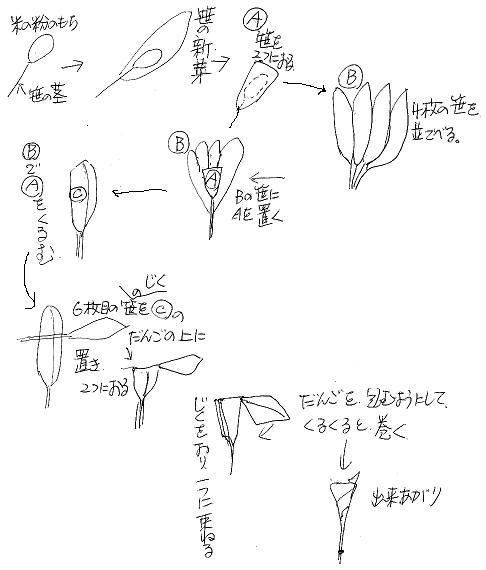 米の粉のもち
笹の茎
笹の新葉
Ⓐ
笹を
2つにおる
Ⓑ
4枚の笹を
並べる。
Ⓑ
Ⓐ
Bの笹に
Aを置く
Ⓒ
ⒷでⒶをくるむ
6枚目の笹のじくをⒸの
だんごの上に
置き
2つにおる
じくをおり、一つに束ねる
だんごを包むようにして、
くるくると巻く
出来あがり